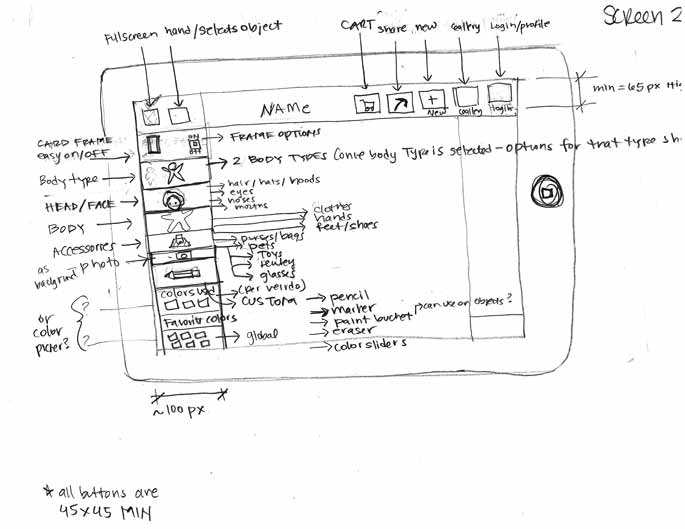 SCREEN 2
CART share new Gallery Login/profile
Fullscreen hand/selects object
min = 65 px Hi
NAME
New Gallery
CARD FRAME
easy on/OFF
ON
OFF
FRAME OPTIONS
2 BODY TYPES (once body Type is selected - options for that type sh
Body type
hair/hats/hoods
eyes
noses
mouths
HEAD/FACE
clothes
hands
feet/shoes
BODY
Accessories
purses/bags
pets
Toys
jewelry
glasses
as
background
photo
colors used
(per veirdo)
CUSTOM
pencil
marker
paint bucket
eraser
color sliders
can use on objects?
or
color
picker?
?
?
Favorite colors
global
~100 px
* all buttons are
45x45 MIN